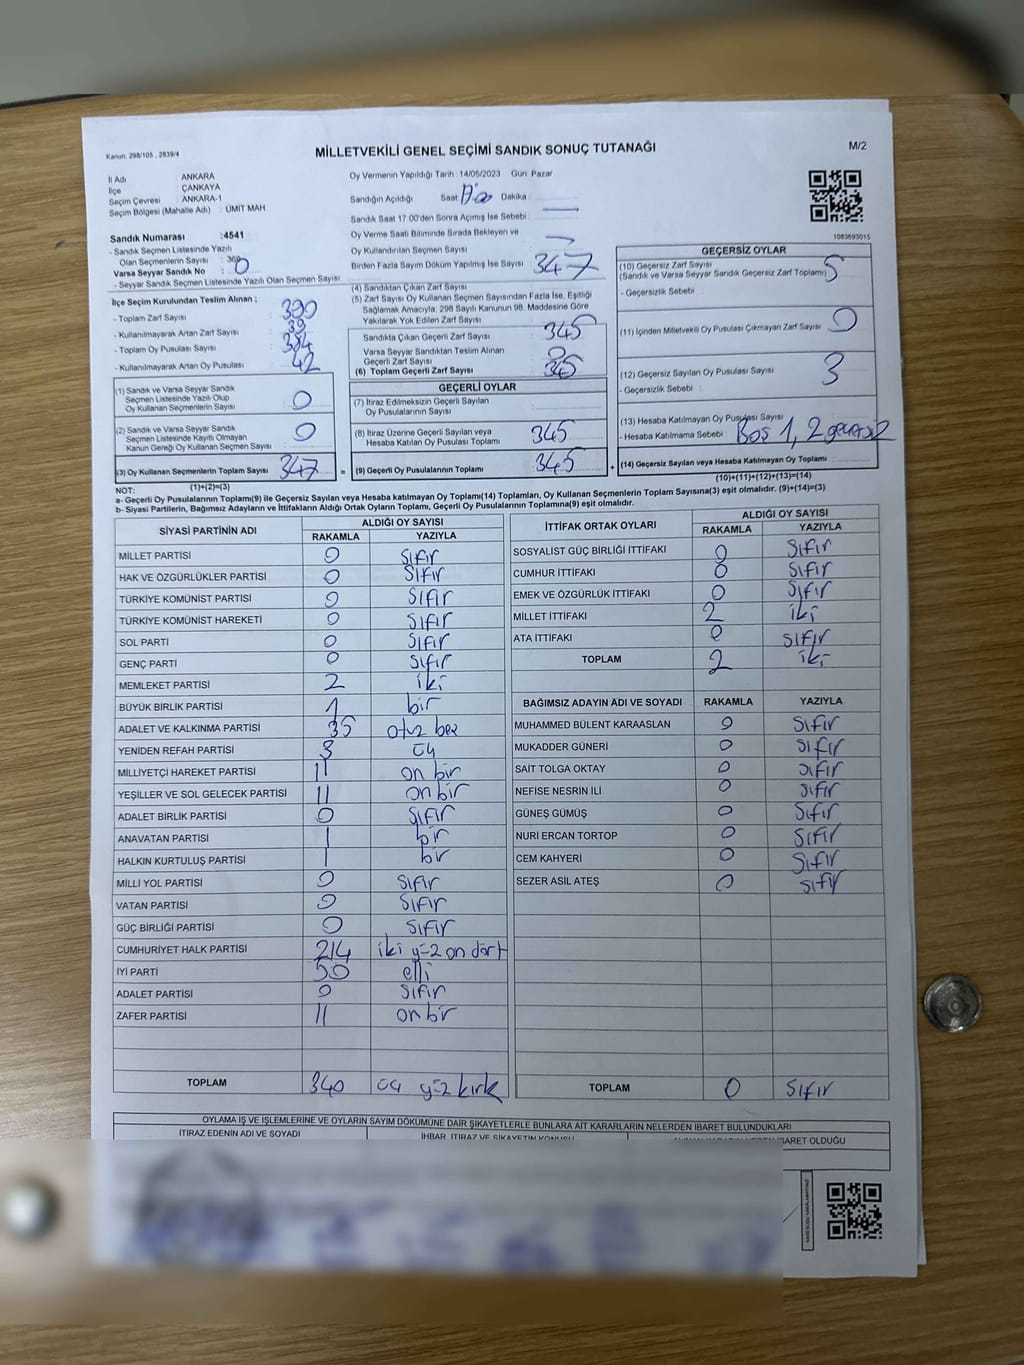 Kanun: 298/105 , 2839/4
MİLLETVEKİLİ GENEL SEÇİMİ SANDIK SONUÇ TUTANAĞI
M/2
İl Adı : ANKARA
İlçe : ÇANKAYA
Seçim Çevresi : ANKARA-1
Seçim Bölgesi (Mahalle Adı) : ÜMİT MAH
Oy Vermenin Yapıldığı Tarih :14/05/2023 Gün: Pazar
Sandığın Açıldığı Saat Dakika :
Sandık Saat 17:00'den Sonra Açımış İse Sebebi :
Oy Verme Saati Bitiminde Sırada Bekleyen ve
Oy Kullandırılan Seçmen Sayısı
Birden Fazla Sayım Döküm Yapılmış İse Sayısı
1083693015
Sandık Numarası :4541
- Sandık Seçmen Listesinde Yazılı
Olan Seçmenlerin Sayısı :
Varsa Seyyar Sandık No : 0
- Seyyar Sandık Seçmen Listesinde Yazılı Olan Seçmen Sayısı
İlçe Seçim Kurulundan Teslim Alınan ;
- Toplam Zarf Sayısı : 390
- Kullanılmayarak Artan Zarf Sayısı : 39
- Toplam Oy Pusulası Sayısı : 384
- Kullanılmayarak Artan Oy Pusulası : 42
(1) Sandık ve Varsa Seyyar Sandık
Seçmen Listesinde Yazılı Olup
Oy Kullanan Seçmenlerin Sayısı 0
(2) Sandık ve Varsa Seyyar Sandık
Seçmen Listesinde Kayıtlı Olmayan
Kanun Gereği Oy Kullanan Seçmen Sayısı 0
(3) Oy Kullanan Seçmenlerin Toplam Sayısı 347 =
(1)+(2)=(3)
(4) Sandıktan Çıkan Zarf Sayısı 347
(5) Zarf Sayısı Oy Kullanan Seçmen Sayısından Fazla İse, Eşitliği
Sağlamak Amacıyla, 298 Sayılı Kanunun 98. Maddesine Göre
Yakılarak Yok Edilen Zarf Sayısı
Sandıkta Çıkan Geçerli Zarf Sayısı 345
Varsa Seyyar Sandıktan Teslim Alınan
Geçerli Zarf Sayısı 0
(6) Toplam Geçerli Zarf Sayısı 345
GEÇERLİ OYLAR
(7) İtiraz Edilmeksizin Geçerli Sayılan
Oy Pusulalarının Sayısı
(8) İtiraz Üzerine Geçerli Sayılan veya
Hesaba Katılan Oy Pusulası Toplamı 345
(9) Geçerli Oy Pusulalarının Toplamı 345 +
GEÇERSİZ OYLAR
(10) Geçersiz Zarf Sayısı
(Sandık ve Varsa Seyyar Sandık Geçersiz Zarf Toplamı) 5
- Geçersizlik Sebebi :
(11) İçinden Milletvekili Oy Pusulası Çıkmayan Zarf Sayısı 0
(12) Geçersiz Sayılan Oy Pusulası Sayısı 3
- Geçersizlik Sebebi :
(13) Hesaba Katılmayan Oy Pusulası Sayısı
- Hesaba Katılmama Sebebi : Boş 1, 2 geçersiz
(14) Geçersiz Sayılan veya Hesaba Katılmayan Oy Toplamı
(10)+(11)+(12)+(13)=(14)
NOT:
a- Geçerli Oy Pusulalarının Toplamı(9) ile Geçersiz Sayılan veya Hesaba katılmayan Oy Toplamı(14) Toplamları, Oy Kullanan Seçmenlerin Toplam Sayısına(3) eşit olmalıdır. (9)+(14)=(3)
b- Siyasi Partilerin, Bağımsız Adayların ve İttifakların Aldığı Ortak Oyların Toplamı, Geçerli Oy Pusulalarının Toplamına(9) eşit olmalıdır.
SİYASİ PARTİNİN ADI ALDIĞI OY SAYISI
RAKAMLA YAZIYLA
MİLLET PARTİSİ 0 Sıfır
HAK VE ÖZGÜRLÜKLER PARTİSİ 0 Sıfır
TÜRKİYE KOMÜNİST PARTİSİ 0 Sıfır
TÜRKİYE KOMÜNİST HAREKETİ 0 Sıfır
SOL PARTİ 0 Sıfır
GENÇ PARTİ 0 Sıfır
MEMLEKET PARTİSİ 2 iki
BÜYÜK BİRLİK PARTİSİ 1 bir
ADALET VE KALKINMA PARTİSİ 35 otuz beş
YENİDEN REFAH PARTİSİ 3 üç
MİLLİYETÇİ HAREKET PARTİSİ 11 on bir
YEŞİLLER VE SOL GELECEK PARTİSİ 11 on bir
ADALET BİRLİK PARTİSİ 0 Sıfır
ANAVATAN PARTİSİ 1 bir
HALKIN KURTULUŞ PARTİSİ 1 bir
MİLLİ YOL PARTİSİ 0 Sıfır
VATAN PARTİSİ 0 Sıfır
GÜÇ BİRLİĞİ PARTİSİ 0 Sıfır
CUMHURİYET HALK PARTİSİ 214 iki yüz on dört
İYİ PARTİ 50 elli
ADALET PARTİSİ 0 Sıfır
ZAFER PARTİSİ 11 on bir
TOPLAM 340 üç yüz kırk
İTTİFAK ORTAK OYLARI ALDIĞI OY SAYISI
RAKAMLA YAZIYLA
SOSYALİST GÜÇ BİRLİĞİ İTTİFAKI 0 Sıfır
CUMHUR İTTİFAKI 0 Sıfır
EMEK VE ÖZGÜRLÜK İTTİFAKI 0 Sıfır
MİLLET İTTİFAKI 2 iki
ATA İTTİFAKI 0 Sıfır
TOPLAM 2 iki
BAĞIMSIZ ADAYIN ADI VE SOYADI RAKAMLA YAZIYLA
MUHAMMED BÜLENT KARAASLAN 0 Sıfır
MUKADDER GÜNERİ 0 Sıfır
SAİT TOLGA OKTAY 0 Sıfır
NEFİSE NESRİN İLİ 0 Sıfır
GÜNEŞ GÜMÜŞ 0 Sıfır
NURİ ERCAN TORTOP 0 Sıfır
CEM KAHYERİ 0 Sıfır
SEZER ASİL ATEŞ 0 Sıfır
TOPLAM 0 Sıfır
OYLAMA İŞ VE İŞLEMLERİNE VE OYLARIN SAYIM DÖKÜMÜNE DAİR ŞİKAYETLERLE BUNLARA AİT KARARLARIN NELERDEN İBARET BULUNDUKLARI
İTİRAZ EDENİN ADI VE SOYADI
İHBAR, İTİRAZ VE ŞİKAYETİN KONUSU
İBARET OLDUĞU